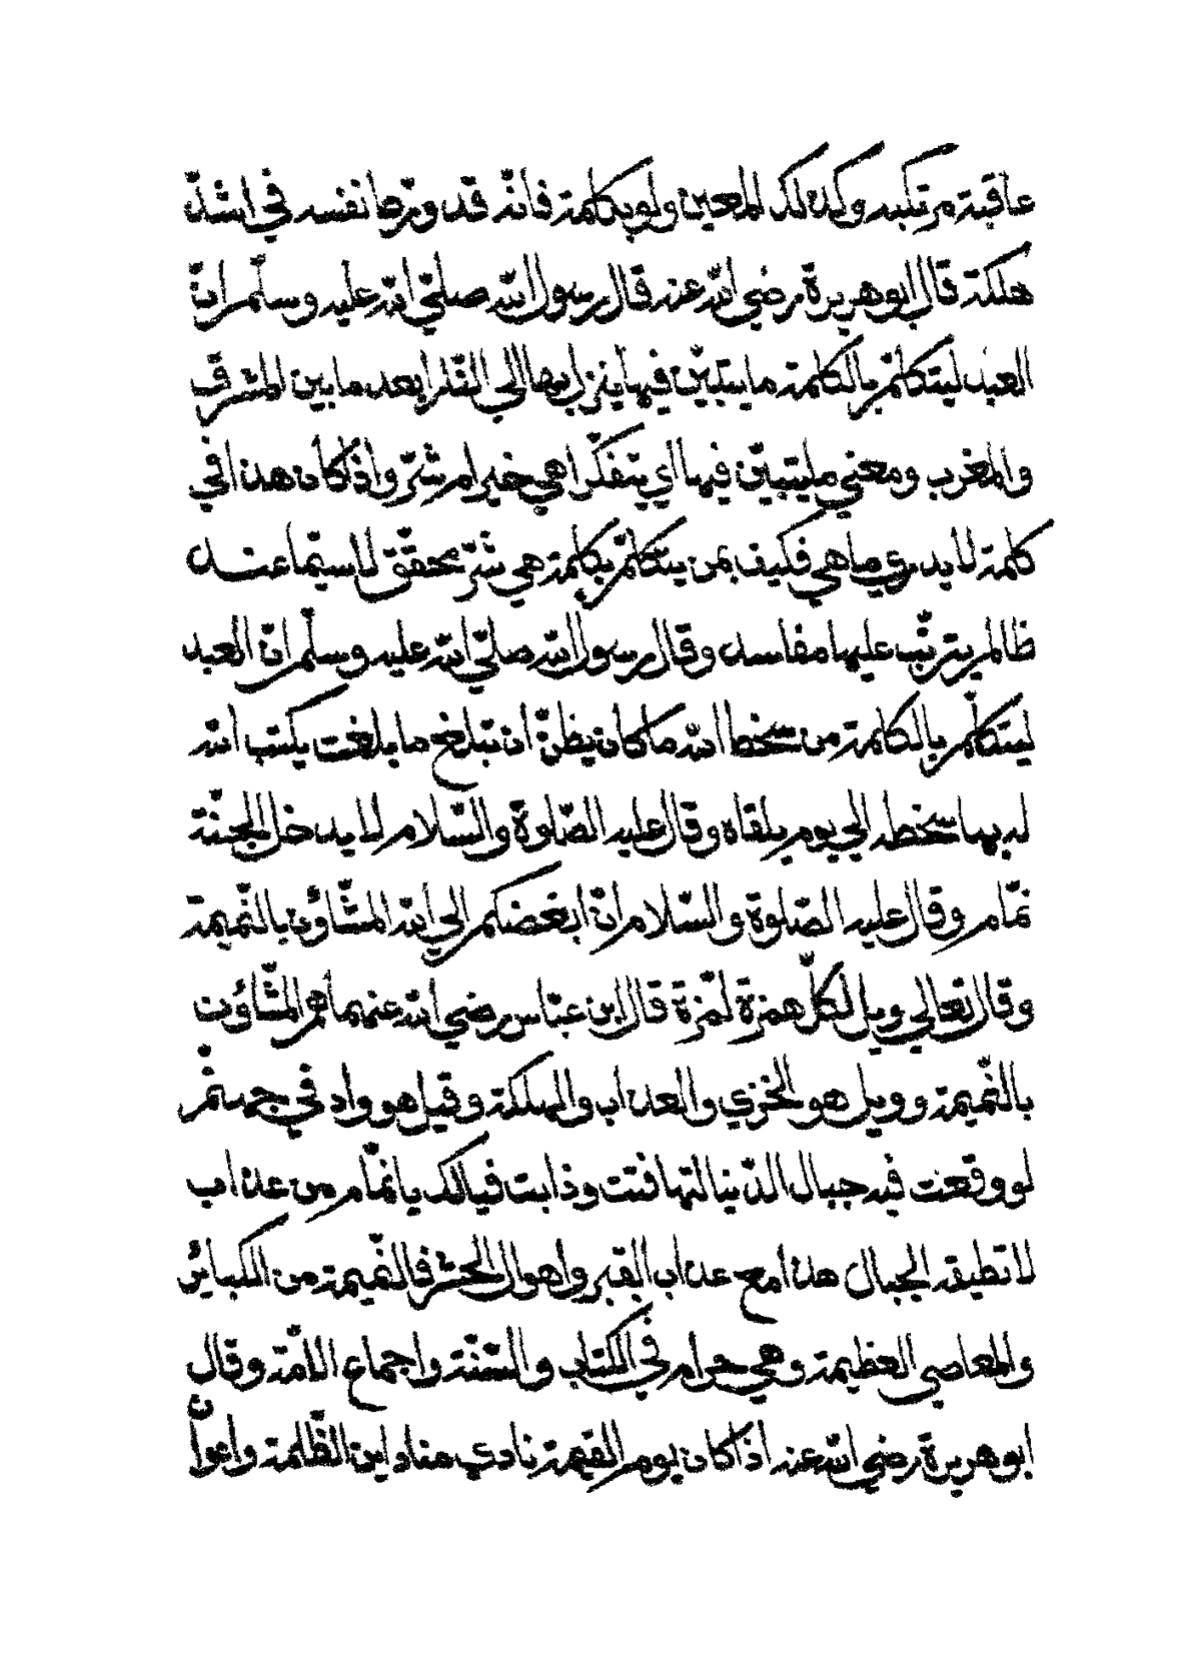 عاقبة مرتكبه وكذلك المعين ولو بكلمة فانّه قد ورّط نفسه في اشدّ
هلكة قال ابو هريرة رضي الله عنه قال رسول الله صلّي الله عليه وسلّم انّ
العبد ليتكلّم بالكلمة ما يتبيّن فيها ينزل بها الي النّار ابعد ما بين المشرق
والمغرب ومعني ما يتبيّن فيها اي يتفكّر اهي خير ام شرّ واذا كان هذا في
كلمة لا يدري ما هي فكيف بمن يتكلّم بكلمة هي شرّ محقّق لا سيّما عند
ظالم يترتّب عليها مفاسد وقال رسول الله صلّي الله عليه وسلّم انّ العبد
ليتكلّم بالكلمة من سخط الله ما كان يظنّ ان تبلغ ما بلغت يكتب الله
له بها سخطه الي يوم يلقاه وقال عليه الصّلوة والسّلام لا يدخل الجنّة
نمّام وقال عليه الصّلوة والسّلام انّ ابغضكم الي الله المشّاؤن بالنّميمة
وقال تعالي ويل لكلّ همزة لمزة قال ابن عبّاس رضي الله عنهما هم المشّاؤن
بالنّميمة وويل هو الخزي والعذاب والهلكة وقيل هو واد في جهنّم
لو وقعت فيه جبال الدّنيا لتهافتت وذابت فيا لك يا نمّام من عذاب
لا تطيقه الجبال هذا مع عذاب القبر واهوال الحشر فالنّميمة من الكبائر
والمعاصي العظيمة وهي حرام في الكتاب والسّنّة واجماع الامّة وقال
ابو هريرة رضي الله عنه اذا كان يوم القيمة نادي مناد اين الظّلمة واعوان